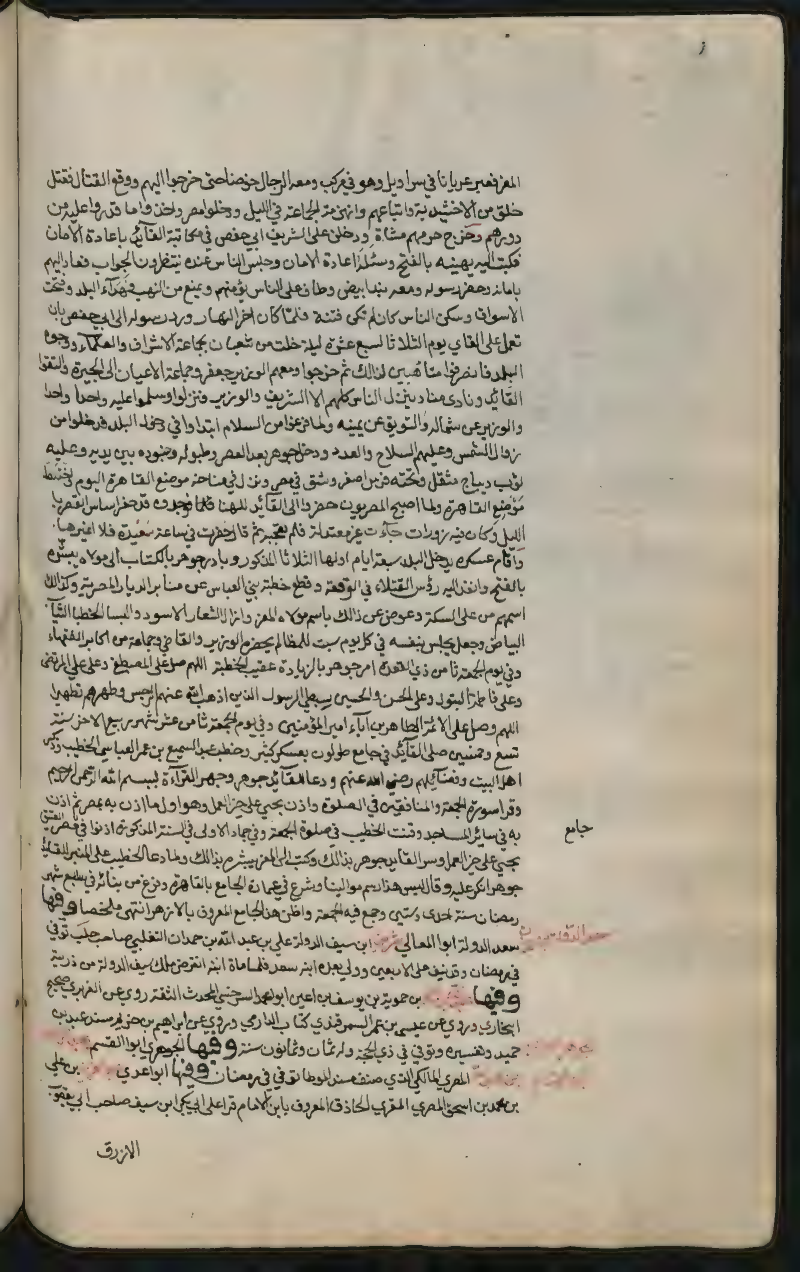 المعز فعبر عريانا في سراويل وهو في مركب ومعه الرجال خوضا حتى خرجوا اليهم ووقع القتال فقتل
خلق من الاخشيدية واتباعهم وانهزمت الجماعة في الليل ودخلوا مصر واخذوا ما قدروا عليه من
دورهم وخرج حرمهم مشاة ودخلن على الشريف ابي جعفر في مكاتبة القائد باعادة الامان
فكتب اليه يهنيه بالفتح وسئله اعادة الامان وجلس الناس عنده ينتظرون الجواب فعاد اليهم
بامانه وحضر رسوله ومعه بند ابيض وطاف على الناس يؤمنهم ويمنع من النهب فهدأ البلد وفتحت
الاسواق وسكن الناس كان لم تكن فتنة فلما كان اخر النهار ورد رسوله الى ابي جعفر بان
تعمل على لقاي يوم الثلاثا لسبع عشرة ليلة خلت من شعبان بجماعة الاشراف والعلماء ووجوه
البلد فانصرفوا متاهبين لذلك ثم خرجوا ومعهم الوزير جعفر وجماعة الاعيان الى الجيزة والتقوا
القائد ونادى مناد ينزل الناس كلهم الا الشريف والوزير فنزلوا وسلموا عليه واحدا واحدا
والوزير عن شماله والشريف عن يمينه ولما فرغوا من السلام ابتداوا في دخول البلد فدخلوا من
زوال الشمس وعليهم السلاح والعدد ودخل جوهر بعد العصر وطبوله وجنوده بين يديه وعليه
ثوب ديباج مثقل وتحته فرس اصفر وشق في مصر ونزل في مناخه موضع القاهرة اليوم فاختط
موضع القاهرة ولما اصبح المصريون حضروا الى القائد للهنا فوجدوه قد حفر اساس القصر بالليل
وكان فيه زورات جاءت غير معتدلة فلم تعجبه ثم قال حفرت في ساعة سعيدة فلا اغيرها
واقام عسكره يدخل البلد سبعة ايام اولها الثلاثا المذكور وبادر جوهر بالكتاب الى مولاه يبشره
بالفتح وانفذ اليه رؤس القتلاء في الوقعة وقطع خطبة بني العباس عن منابر الديار المصرية وكذلك
اسمهم من على السكة وعوض عن ذلك باسم مولاه المعز وازال الشعار الاسود والبس الخطبا الثياب
البياض وجعل يجلس بنفسه في كل يوم سبت للمظالم بحضرة الوزير والقاضي وجماعة من اكابر الفقهاء
وفي يوم الجمعة ثامن ذي القعدة امر جوهر بالزيادة عقيب الخطبة اللهم صل على المصطفى وعلى علي المرتضى
وعلى فاطمة البتول وعلى الحسن والحسين سبطي الرسول الذين اذهب الله عنهم الرجس وطهرهم تطهيرا
اللهم وصل على الائمة الطاهرين آباء امير المؤمنين وفي يوم الجمعة ثامن عشر شهر ربيع الاخر سنة
تسع وخمسين صلى القائد في جامع طولون بعسكر كثير وخطب عبد السميع بن عمر العباسي الخطيب وذكر
اهل البيت وفضائلهم رضي الله عنهم ودعا للقائد جوهر وجهر القرآءة ببسم الله الرحمن الرحيم
وقرا سورة الجمعة والمنافقين في الصلوة واذن بحي على خير العمل وهو اول ما اذن به بمصر ثم اذن
به في سائر المساجد وقنت الخطيب في صلوة الجمعة وفي جمادى الاولى في السنة المذكورة اذنوا في جامع مصر العتيق
بحي على خير العمل وسر القايد جوهر بذلك وكتب الى المعز يبشره بذلك ولما دعا الخطيب على المنبر للقائد
جوهر انكر عليه وقال ليس هذا رسم موالينا وشرع في عمارة الجامع بالقاهرة وفرغ من بنائه في سابع شهر
رمضان سنة احدى وستين وجمع فيه الجمعة واظن هذا الجامع المعروف بالازهر انتهى ملخصا وفيها
سعد الدولة ابوا المعالي ابن سيف الدولة علي بن عبد الله بن حمدان التغلبي صاحب حلب توفي
في رمضان وقد نيف على الاربعين وولي بعده ابنه سعد فلما مات ابنه انقرض ملك سيف الدولة من ذريته
وفيها بن حموية بن يوسف بن اعين ابو محمد السرخسي المحدث الثقة روى عن الفربري صحيح
البخاري وروى عن عيسى بن عمر السمرقندي كتاب الدارمي وروى عن ابراهيم بن خزيم مسند عبد بن
حميد وتفسيره وتوفي في ذي الحجة وله ثمان وثمانون سنة وفيها الجوهري ابوا القسم
المصري المالكي الذي صنف مسند الموطا توفي في رمضان وفيها ابوا عدي بن علي
بن محمد بن اسحق المصري المقري الحاذق المعروف بابن الامام قرا على ابي بكر ابن سيف صاحب ابي يعقوب
الازرق
جامع